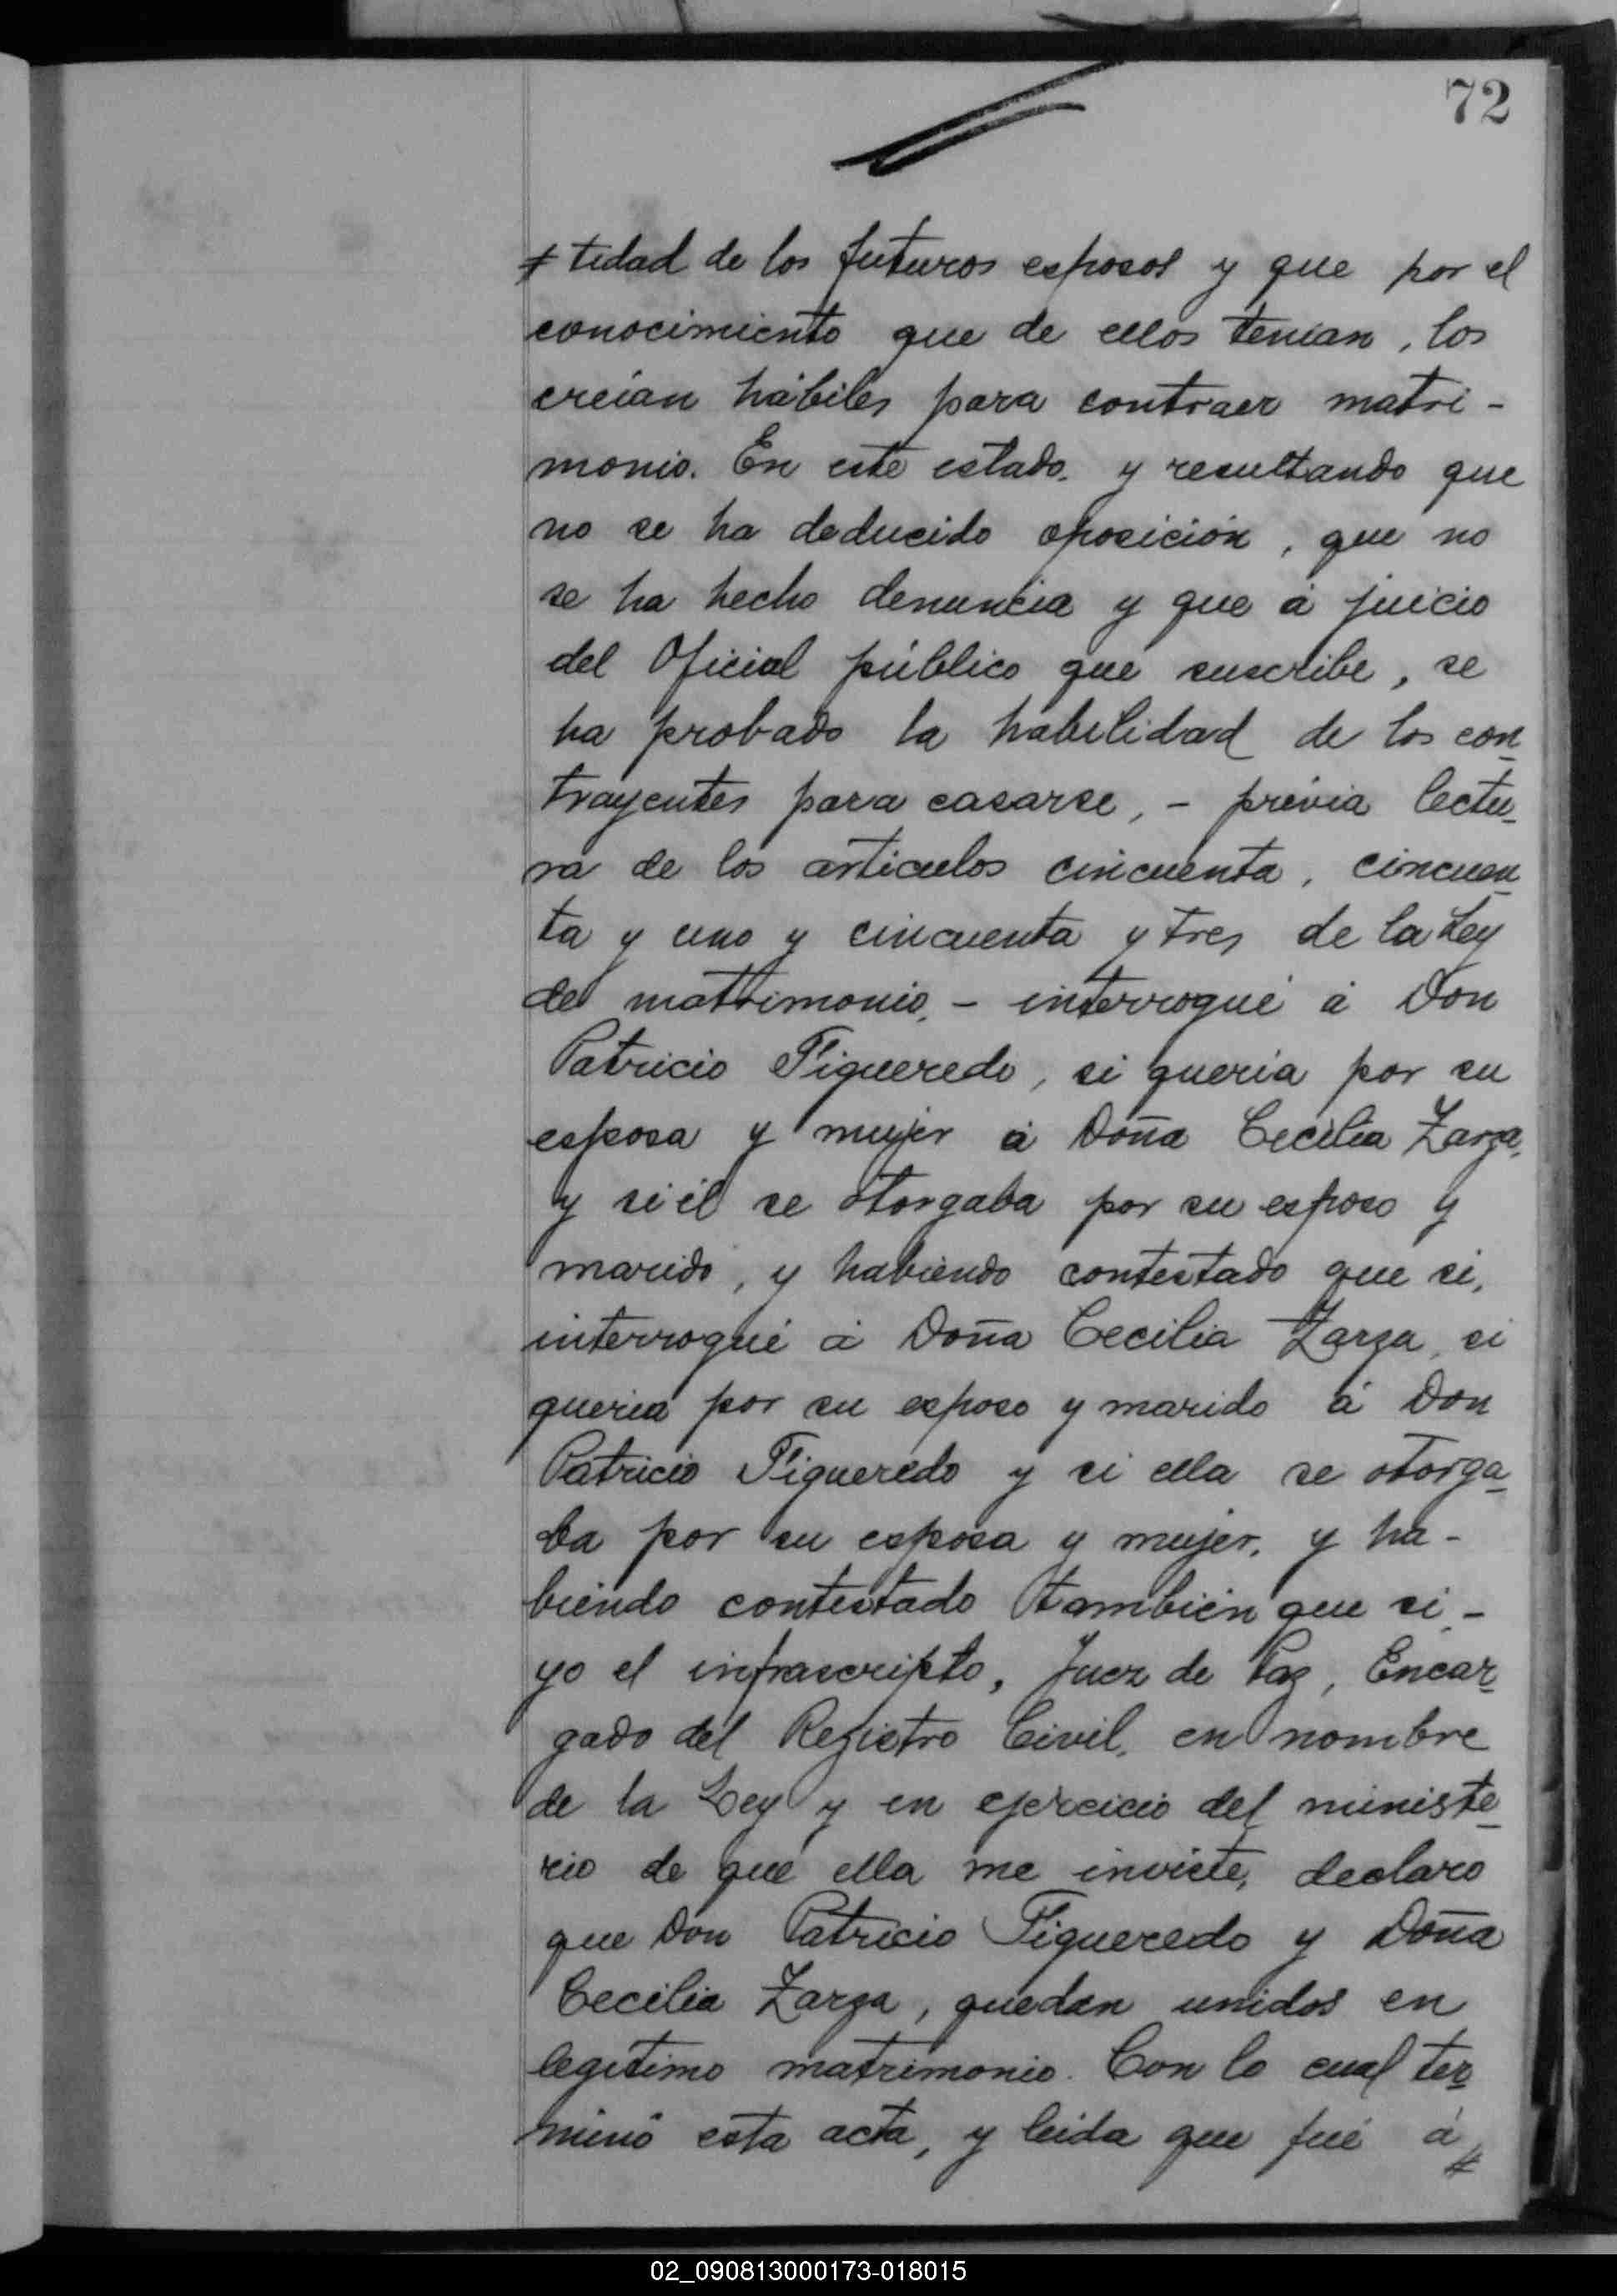 72
≠ tidad de los futuros esposos y que por el
conocimiento que de ellos tenían, los
creían hábiles para contraer matri-
monio. En este estado, y resultando que
no se ha deducido oposición, que no
se ha hecho denuncia y que á juicio
del Oficial público que suscribe, se
ha probado la habilidad de los con-
trayentes para casarse, - prévia lectu-
ra de los articulos cincuenta, cincuen-
ta y uno y cincuenta y tres de la Ley
de matrimonio, - interrogué á Don
Patricio Figueredo, si quería por su
esposa y mujer á Doña Cecilia Zarza,
y si él se otorgaba por su esposo y
marido, y habiendo contestado que si,
interrogué á Doña Cecilia Zarza, si
quería por su esposo y marido á Don
Patricio Figueredo y si ella se otorga-
ba por su esposa y mujer, y ha-
biendo contestado también que si, -
yo el infrascripto, Juez de Paz, Encar-
gado del Registro Civil, en nombre
de la Ley y en ejercicio del ministe-
rio de que ella me inviste, declaro
que Don Patricio Figueredo y Doña
Cecilia Zarza, quedan unidos en
legítimo matrimonio. Con lo cual ter-
minó esta acta, y leida que fué á
≠
02_090813000173-018015